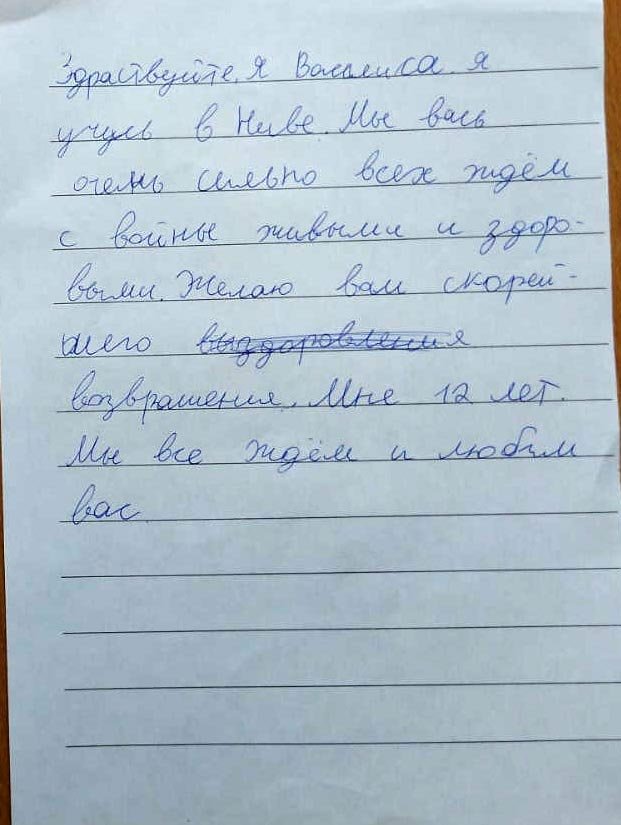 Здраствуйте, я Василиса я
учусь в Ниве. Мы вась
очень сильно всех ждём
с войны живыми и здоро-
выми. Желаю вам скорей-
шего выздоровления
возврашения. Мне 12 лет.
Мы все ждём и любим
вас.